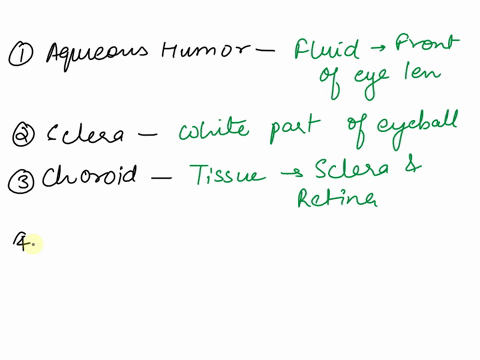 ① Aqueous Humor — Fluid → Front
of eye len
② Sclera — White part of eyeball
③ Choroid — Tissue → Sclera &
Retina
4.